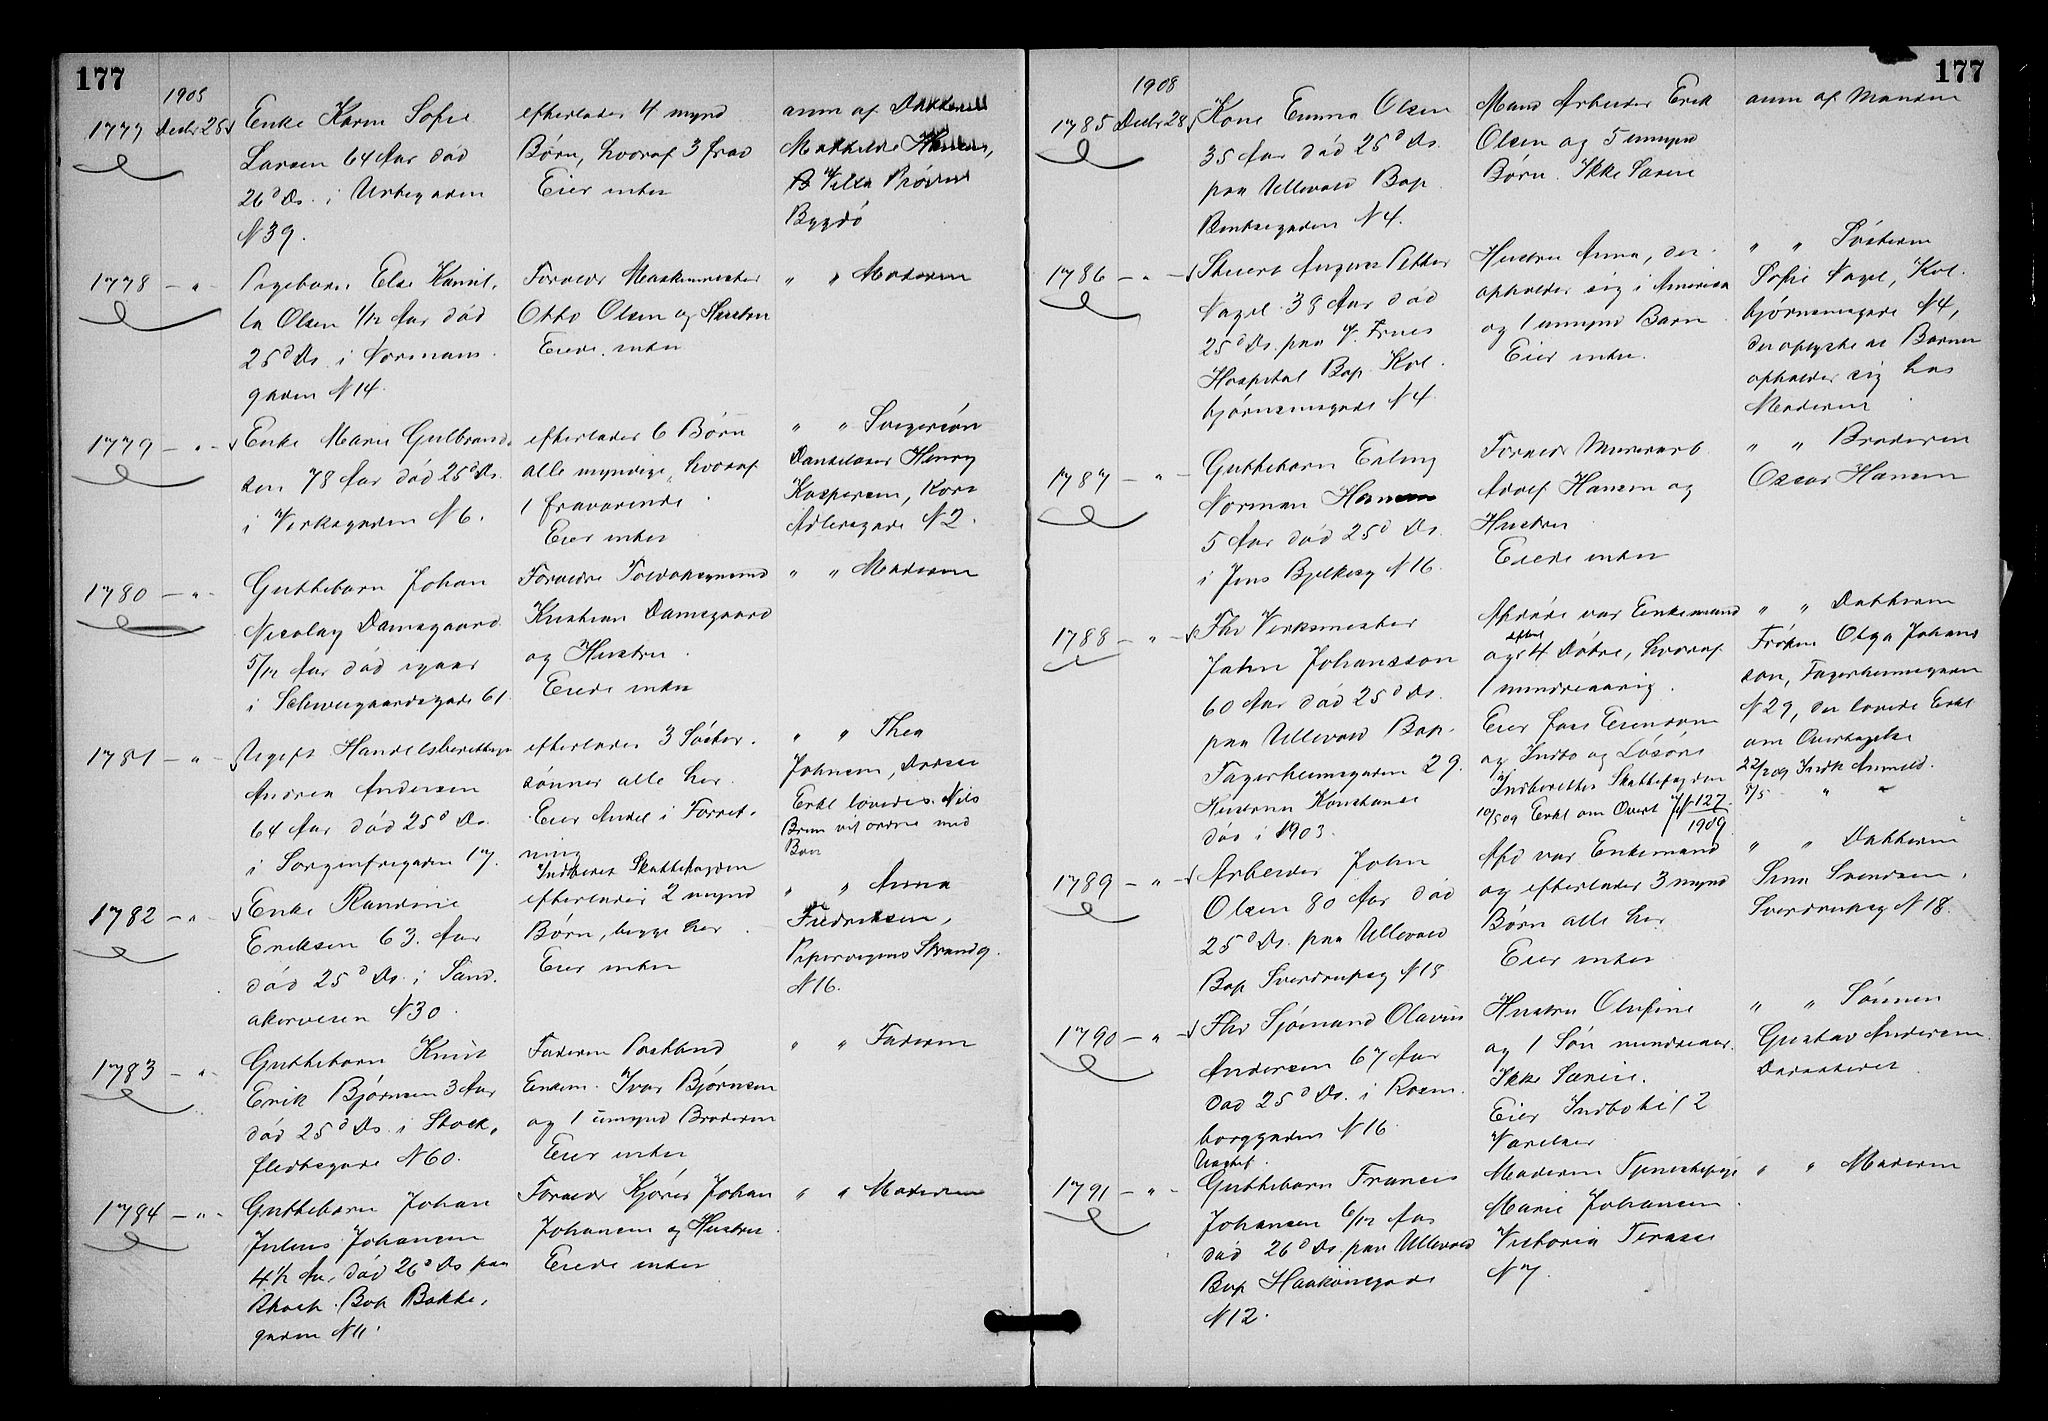 177
1908
1777 Decbr 28
Enke Karen Sofie
Larsen 64 Aar død
26d Ds. i Urtegaden
N 39.
efterlader 4 mynd
Børn, hvoraf 3 frav
Eier intet
anm af Datteren
Mathilde
Villa
Bygdø
1778 - " -
Pigebarn Else Kamil-
la Olsen 1/12 Aar død
25d Ds. i Normans-
gaden N 14.
Forældr Maskinmester
Otto Olsen og Hustru
Eiede intet
" " Moderen
1779 - " -
Enke Marie Gulbrand-
sen 78 Aar død 25d Ds.
i Verksgaden N 6.
efterlader 6 Børn
alle myndige, hvoraf
1 fraværende
Eier intet
" " Svigersøn
Henry
Kaspersen, Kort
Adlersgade N 2.
1780 - " -
Guttebarn Johan
Nicolay Damsgaard
5/12 Aar død igaar
i Schweigaardsgade 61.
Forældre Toldopsynsmd
Kristian Damsgaard
og Hustru
Eiede intet
" " Moderen
1781 - " -
Ugift Handelsberettiget
Andrea Andersen
64 Aar død 25d Ds.
i Sorgenfrigaden 17.
efterlader 3 Søster-
sønner alle her.
Eier Andel i Forret-
ning
Indberet Skattefogden
" " Thea
Johnsen,
Erkl lovedes. Nils
Brun vil ordne med
Boet
1782 - " -
Enke Randine
Eriksen 63 Aar
død 25d Ds. i Sand-
akerveien N 30.
efterlader 2 mynd
Børn, begge her
Eier intet
" " Anna
Fredriksen,
Pipervigens Strandg.
N 16.
1783 - " -
Guttebarn Knut
Erik Bjørnsen 3 Aar
død 25d Ds. i Stock-
flethsgade N 60.
Faderen Postbud
Enkem. Ivar Bjørnsen
og 1 umynd Broderen
Eier intet
" " Faderen
1784 - " -
Guttebarn Johan
Julius Johansen
4 1/2 Aar, død 26d Ds paa
Rhosp. Bop Bakke-
gaden N 11.
Forældr Kjører Johan
Johansen og Hustru
Eiede intet
" " Moderen
177
1908
1785 Decbr 28
Kone Emma Olsen
35 Aar død 25d Ds.
paa Ullevold Bop
Bentsegaden N 4.
Mand Arbeider Erik
Olsen og 5 umynd
Børn. Ikke Særeie
anm af Manden
1786 - " -
Stuert August Petter
Nagel 38 Aar død
25d Ds. paa V. Frues
Hospital Bop Kol-
bjørnsensgade N 4.
Hustru Anna, der
opholder sig i Amerika
og 1 umynd Barn
Eier intet.
" " Søsteren
Sofie Nagel, Kol-
bjørnsensgade N 4,
der oplyste at Barnet
opholder sig hos
Moderen
1787 - " -
Guttebarn Erling
Norman Hansen
5 Aar død 25d Ds.
i Jens Bjelkesg N 16.
Forældr Murerarb
Adolf Hansen og
Hustru
Eiede intet
" " Broderen
Oscar Hansen
1788 - " -
Fhv Verksmester
John Johansson
60 Aar død 25d Ds.
paa Ullevold Bop.
Fagerheimsgaden 29.
Hustruen Konstanse
død i 1903.
Afdøde var Enkemand
og efterl 4 Døtre, hvoraf
1 mindreaarig.
Eier fast Eiendom
og Indbo og Løsøre
Indberettet Skattefogden
10/5 09 Erkl om Overt
127
1909
" " Datteren
Frøken Olga Johans-
son, Fagerheimsgaden
N 29, der lovede Erkl
om Overtagelse
22/2 09 Indk Anmeld.
5/5 " "
1789 - " -
Arbeider John
Olsen 80 Aar død
25d Ds. paa Ullevold
Bop Sverdrupsg N 18
Afd var Enkemand
og efterlader 3 mynd
Børn alle her
Eier intet
" " Datteren
Lina Svendsen,
Sverdrupsg N 18.
1790 - " -
Fhv Sjømand Olavus
Andersen 67 Aar
død 25d Ds. i Rosen-
borggaden N 16
Hustru Olufine
og 1 Søn mindreaar.
Ikke Særeie.
Eier Indbo til 2
Værelser
" " Sønnen
Gustav Andersen
1791 - " -
Uægtef.
Guttebarn Francis
Johansen 6/12 Aar
død 26d Ds. paa Ullevold
Bop Haakonsgade
N 12.
Moderen Tjenestepige
Marie Johansen
Victoria Terasse
N 7.
" " Moderen